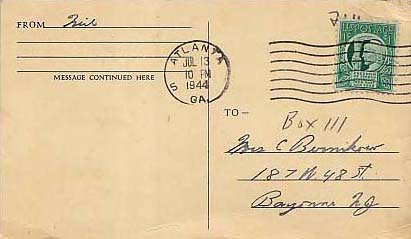 FROM Zeil
MESSAGE CONTINUED HERE
ATLANTA
JUL 13
10 PM
1944
5
GA.
U.S. POSTAGE
1
TO—
Box 111
Mrs C Bornikow
187 W. 48 St.
Bayonne NJ